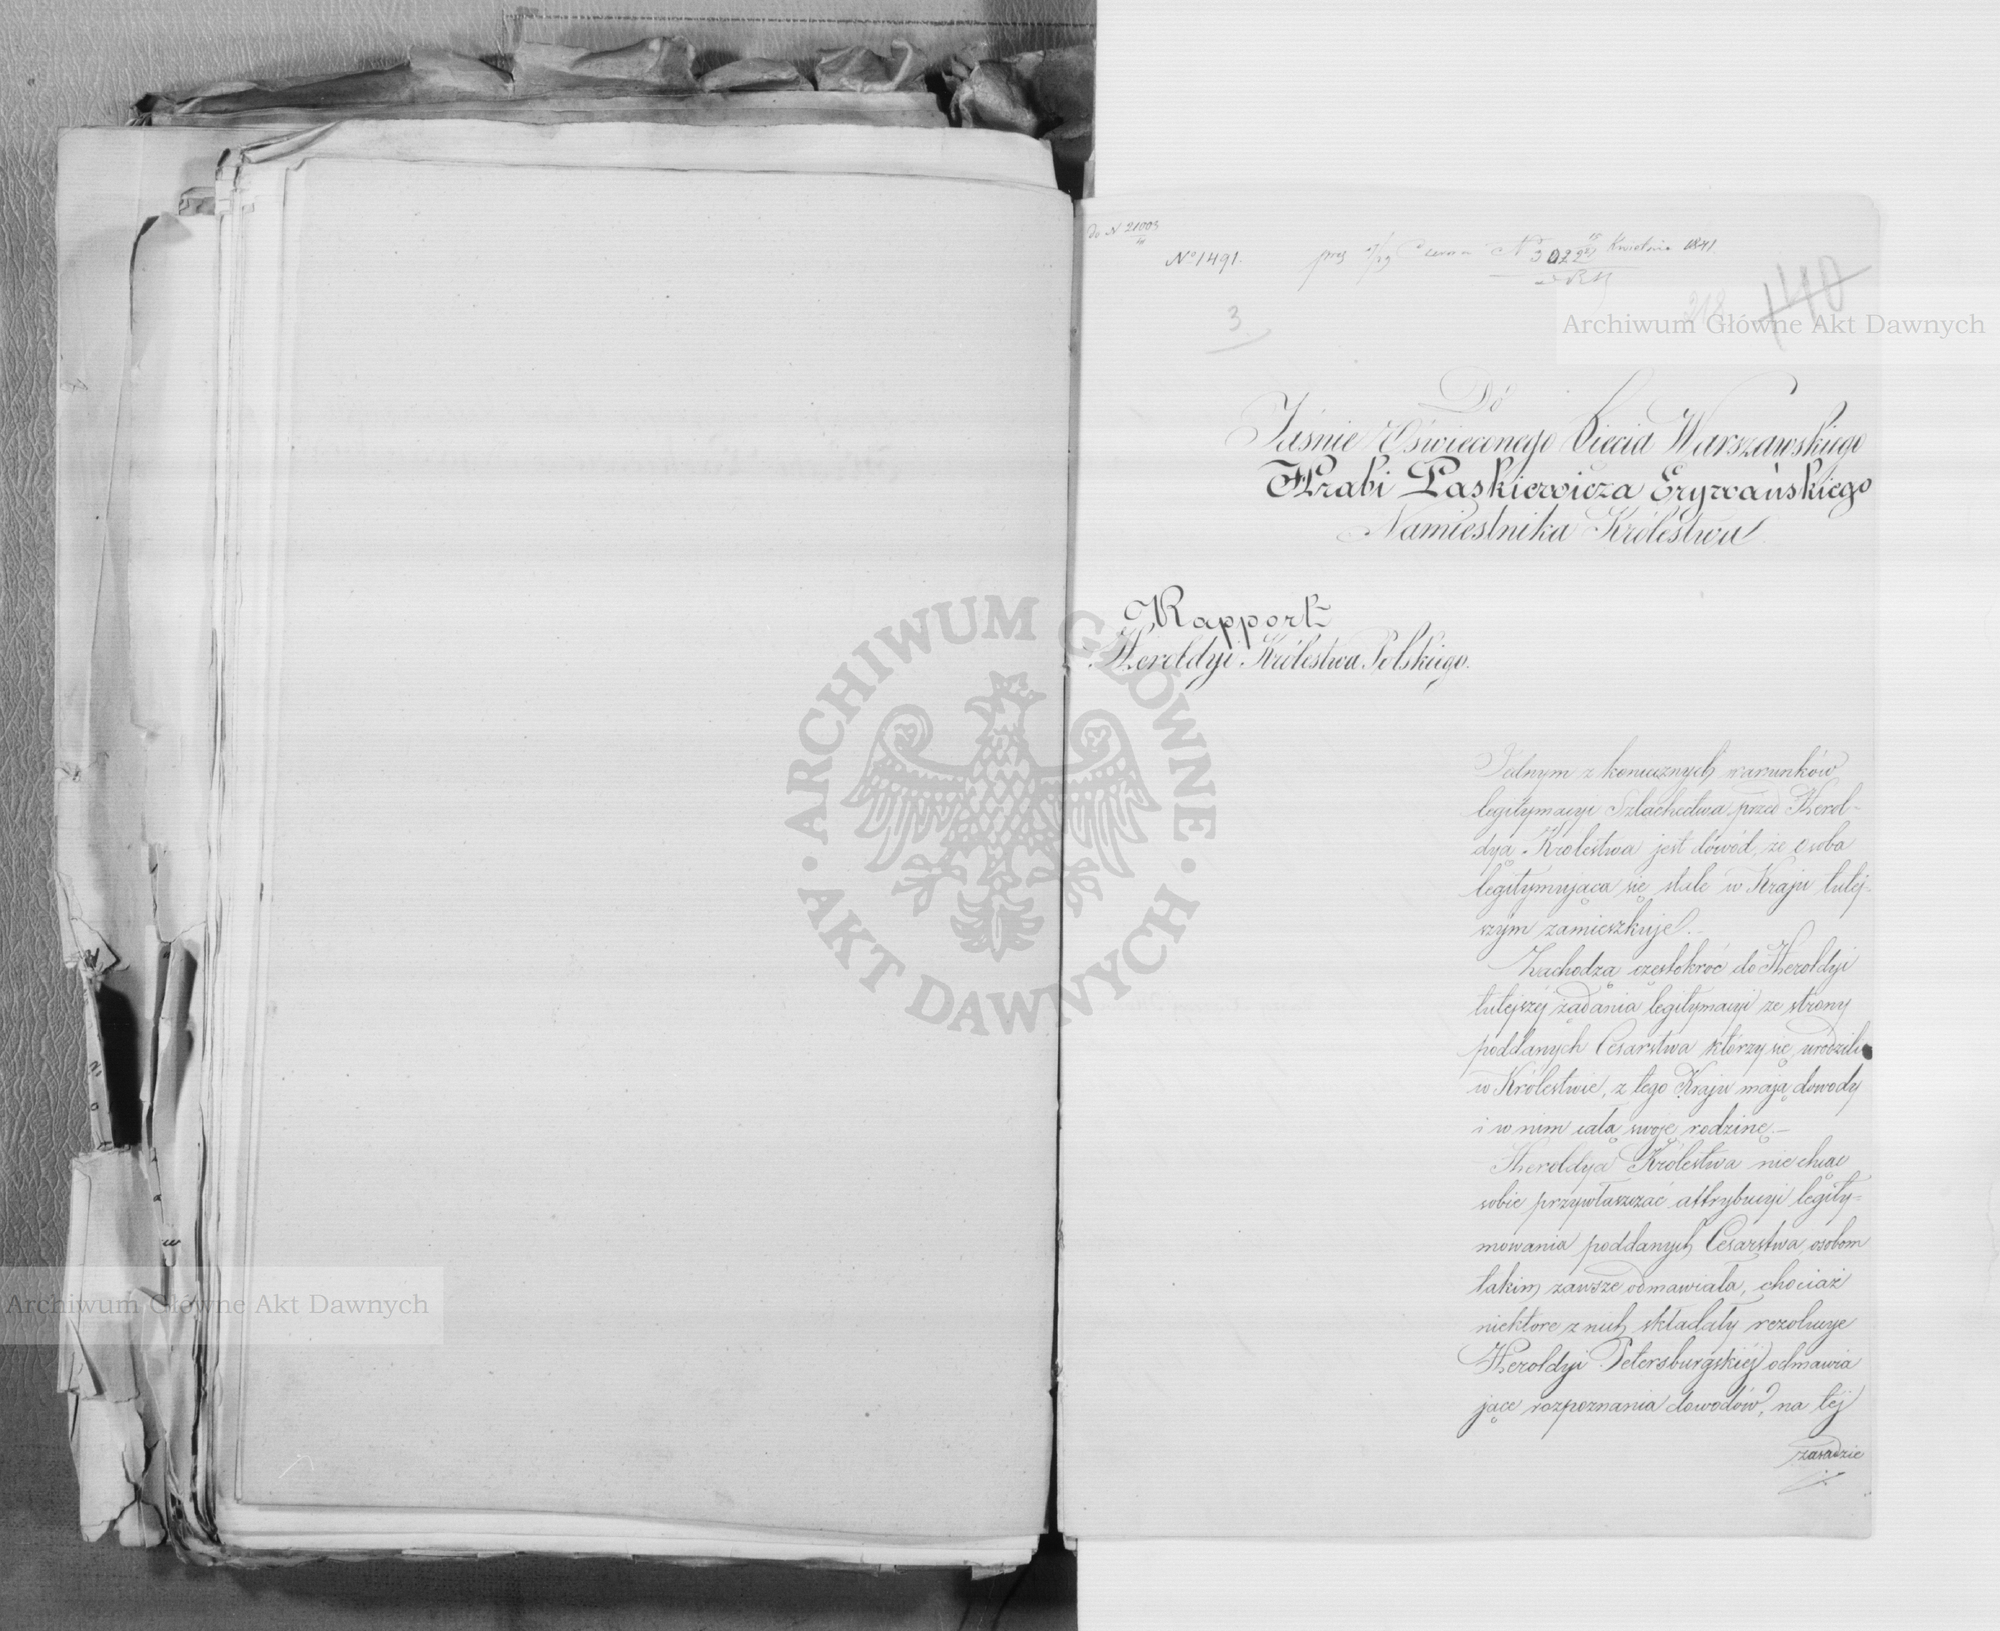 do N 21005
No 1491.
Kwietnia 1841
3
140
Do
Jaśnie Oświeconego Xięcia Warszawskiego
Hrabi Paskiewicza Erywańskiego
Namiestnika Królestwa
Rapport
Heroldyi Królestwa Polskiego.
Jednym z koniecznych warunków
legitymacyi Szlachectwa przed Herol-
dyą Królestwa jest dowód, że osoba
legitymująca się stale w Kraju tutej-
szym zamieszkuje.-
Zachodzą częstokroć do Heroldyi
tutejszéj żądania legitymacyi ze strony
poddanych Cesarstwa którzy się urodzili
w Królestwie, z tego Kraju mają dowody
i w nim całą swoję rodzinę.-
Heroldya Królestwa nie chcąc
sobie przywłaszczać attrybucyi legity-
mowania poddanych Cesarstwa, osobom
takim zawsze odmawiała, chociaż
niektóre z nich składały rezolucye
Heroldyi Petersburgskiéj odmawia
jące rozpoznania dowodów, na téj
zasadzie
Archiwum Główne Akt Dawnych
Archiwum Główne Akt Dawnych
ARCHIWUM GŁÓWNE AKT DAWNYCH